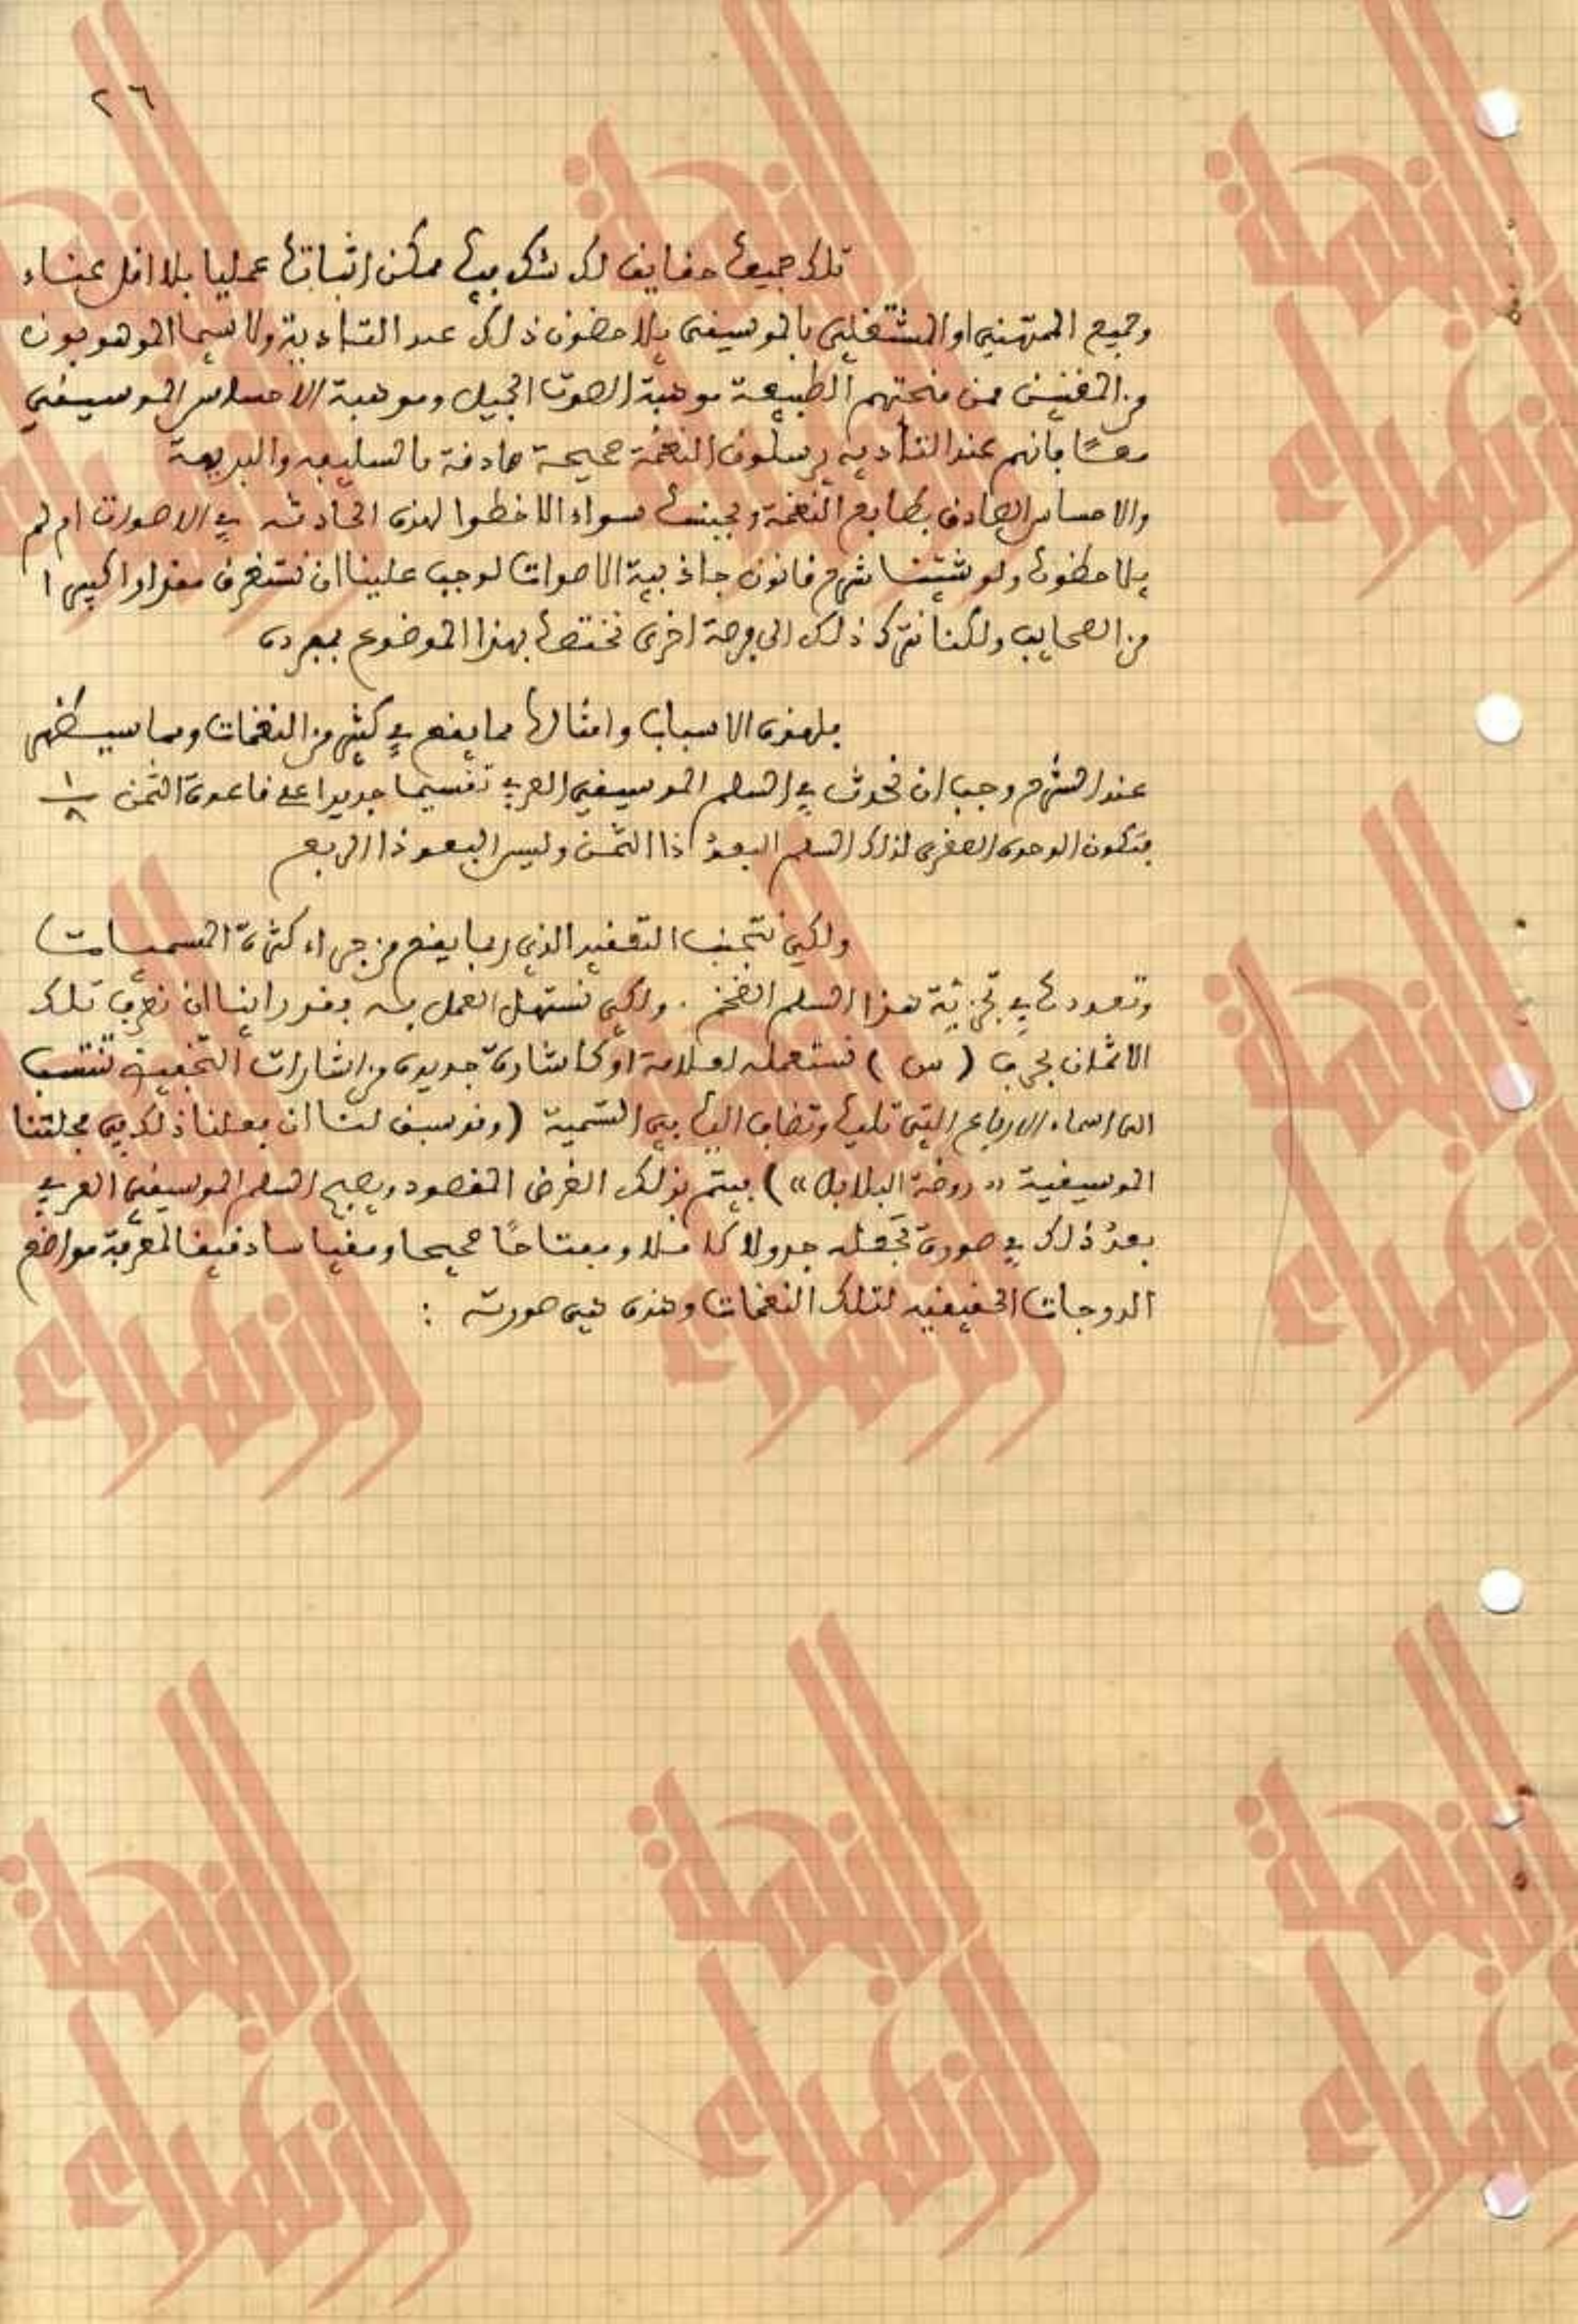 ٢٦
تلك جميعها حقايق لا شك فيها ممكن اثباتها عمليا بلا اقل عناء
وجميع الممتهنين او المشتغلين بالموسيقى يلاحضون ذلك عند التاءدية ولا سيما الموهوبون
من المغنين ممن منحتهم الطبيعة موهبة الصوت الجميل وموهبة الاحساس الموسيقي
معًا فانهم عند التأديه يرسلون النغمة صحيحة صادقة بالسليقه والبديهة
والاحساس الصادق بطابع النغمة وبجنسها سواء الاحظوا لهذه الحادثه في الاصوات ام لم
يلاحظوها ولو شئنا شرح قانون جاذبية الاصوات لوجب علينا ان نستغرق مقدارا كبيرا
من الصحايف ولكننا نترك ذلك الى فرصة اخرى نختصها بهذا الموضوع بمفرده
فلهذه الاسباب وامثالها مما يقع في كثير من النغمات ومما سيظهر
عند الشرح وجب ان نحدث في السلم الموسيقي العربي تقسيما جديدا على قاعدة الثمن ١/٨
فتكون الوحدة الصغرى لذلك السلم البعد ذا الثمن وليس البعد ذا الربع
ولكي نتجنب التعقيد الذي ربما يقع من جراء كثرة المسميات
وتعددها في تجزئة هذا السلم الضخم . ولكي نستهل العمل به فقد راينا ان نعرف تلك
الاثمان بحرف ( س ) نستعمله لعلامة او كاشارة جديدة من اشارات التحفيز تنتسب
الى اسماء الارباع التي تليها وتضاف اليها في التسمية ( وقد سبق لنا ان فعلنا ذلك في مجلتنا
الموسيقية « روضة البلابل » ) فيتم بذلك الغرض المقصود ويصبح السلم الموسيقي العربي
بعد ذلك في صورة تجعله جدولا كاملا ومفتاحًا صحيحا ومقياسا دقيقا لمعرفة مواضع
الدرجات الحقيقيه لتلك النغمات وهذه هي صورته :
النحلة الزهراء